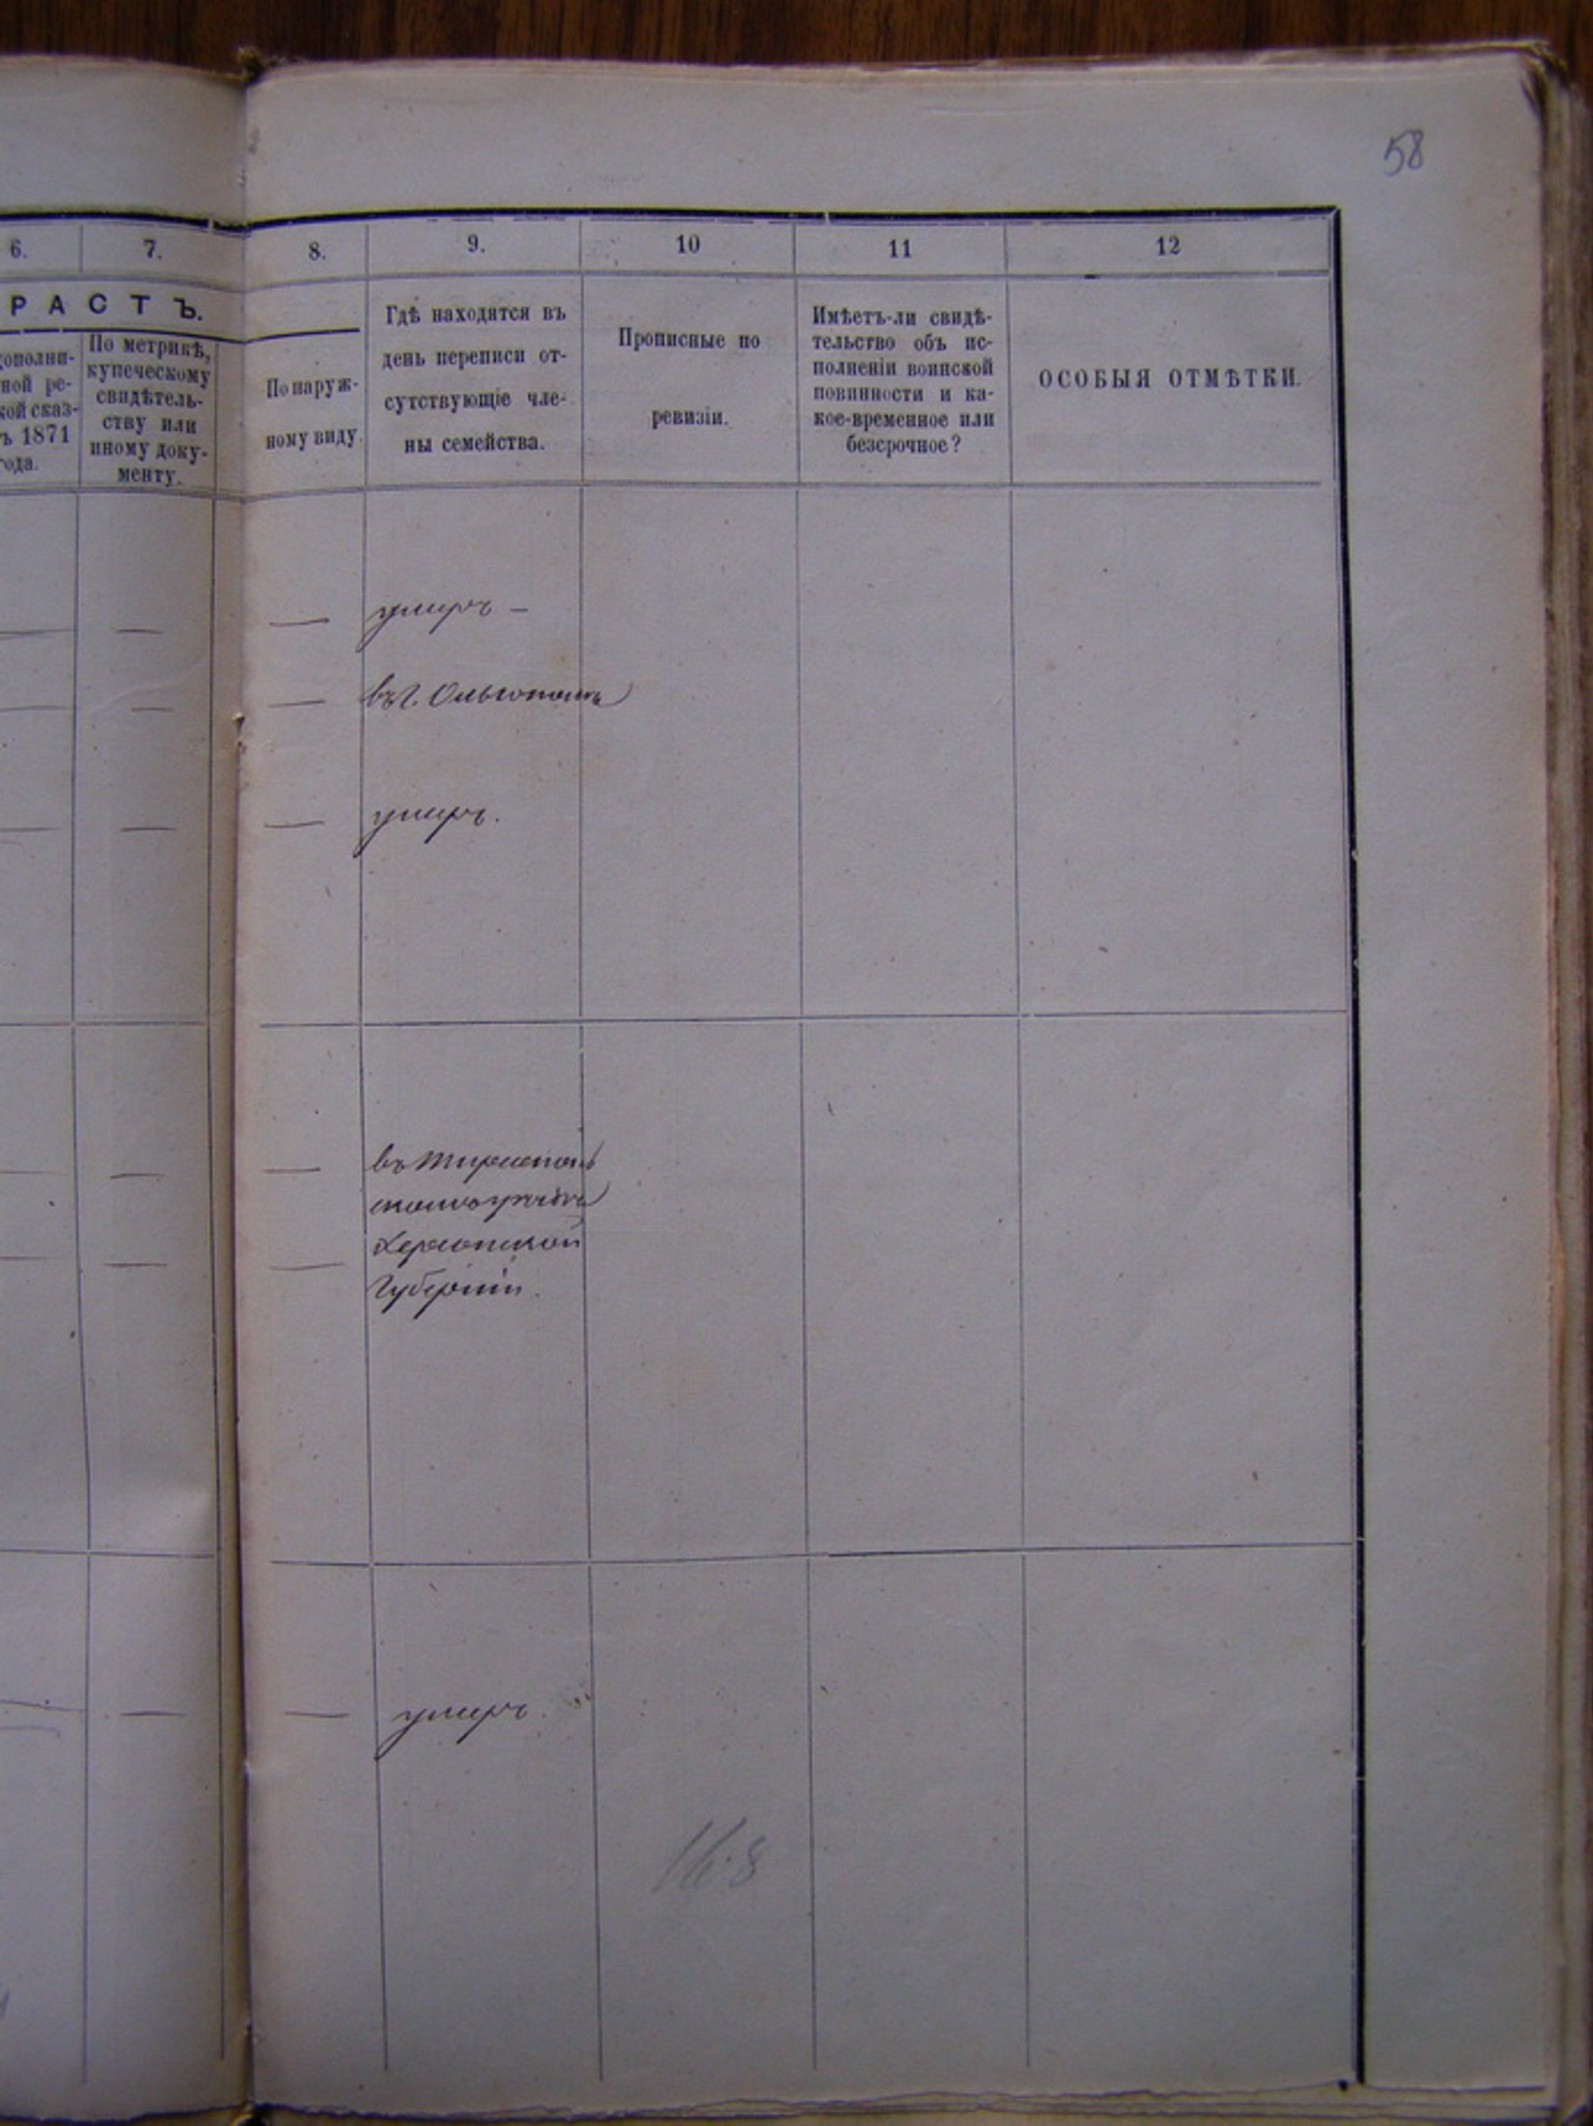 58
6. 7. 8. 9. 10 11 12
РАСТЪ.
дополни-
ной ре-
кой сказ-
ъ 1871
года.
По метрикѣ,
купеческому
свидѣтель-
ству или
иному доку-
менту.
По наруж-
ному виду.
Гдѣ находятся въ
день переписи от-
сутствующіе чле-
ны семейства.
Прописные по
ревизіи.
Имѣетъ-ли свидѣ-
тельство объ ис-
полненіи воинской
повинности и ка-
кое-временное или
безсрочное?
ОСОБЫЯ ОТМѢТКИ.
— — умеръ —
— — въ г. Ольгополѣ
— — умеръ.
— — въ Тирасполь
скомъ уѣздѣ
Херсонской
— — Губерніи.
— — умеръ.
168